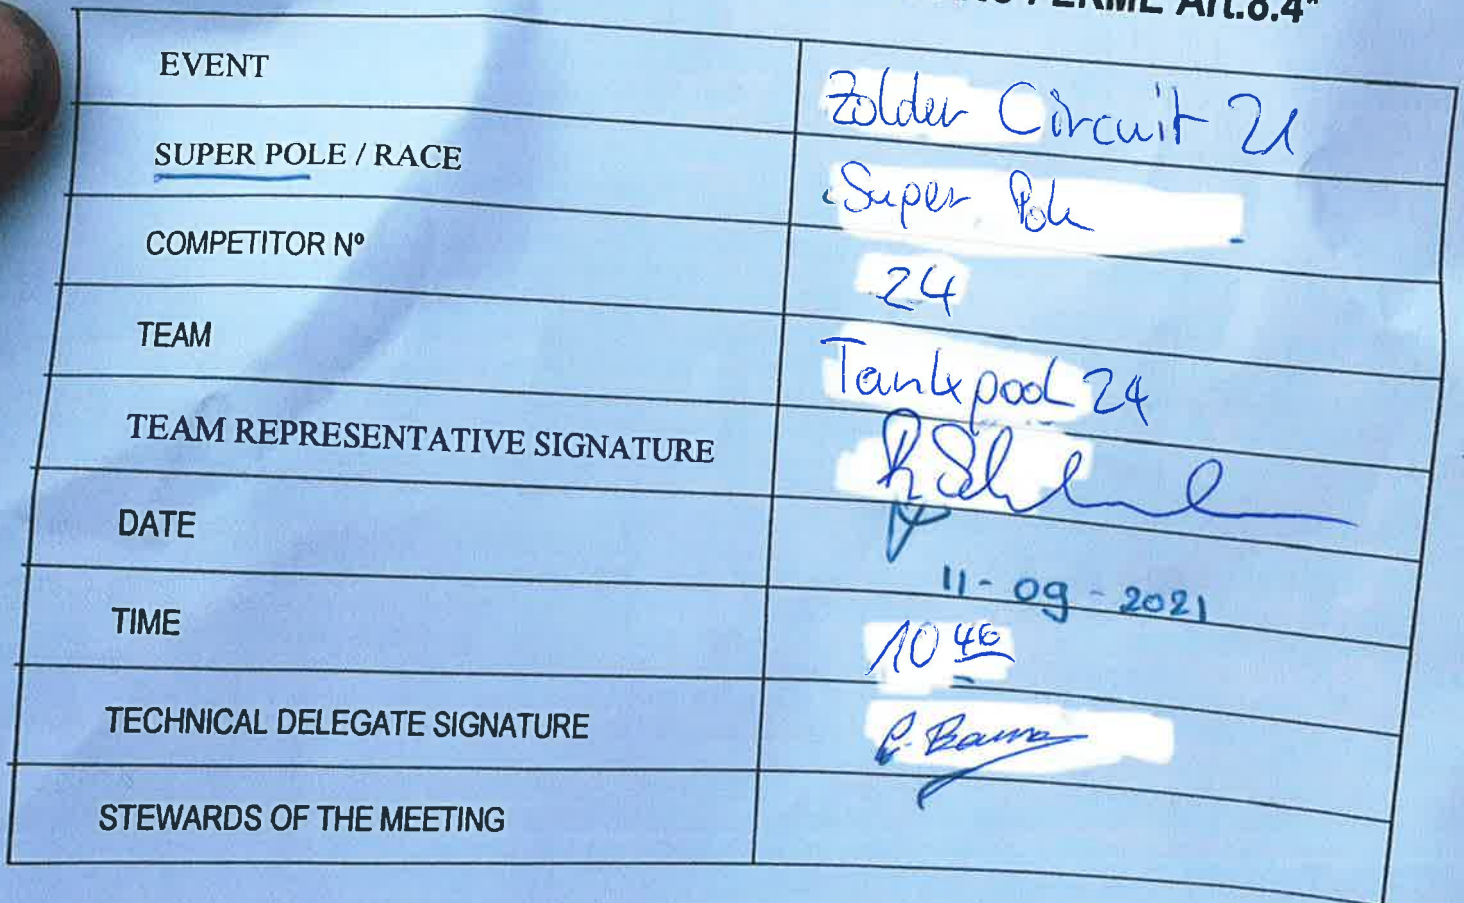 FERME Art.8.4"
EVENT Zolder Circuit 21
SUPER POLE / RACE Super Pole
COMPETITOR Nº 24
TEAM Tankpool 24
TEAM REPRESENTATIVE SIGNATURE
DATE 11-09-2021
TIME 10 46
TECHNICAL DELEGATE SIGNATURE
STEWARDS OF THE MEETING